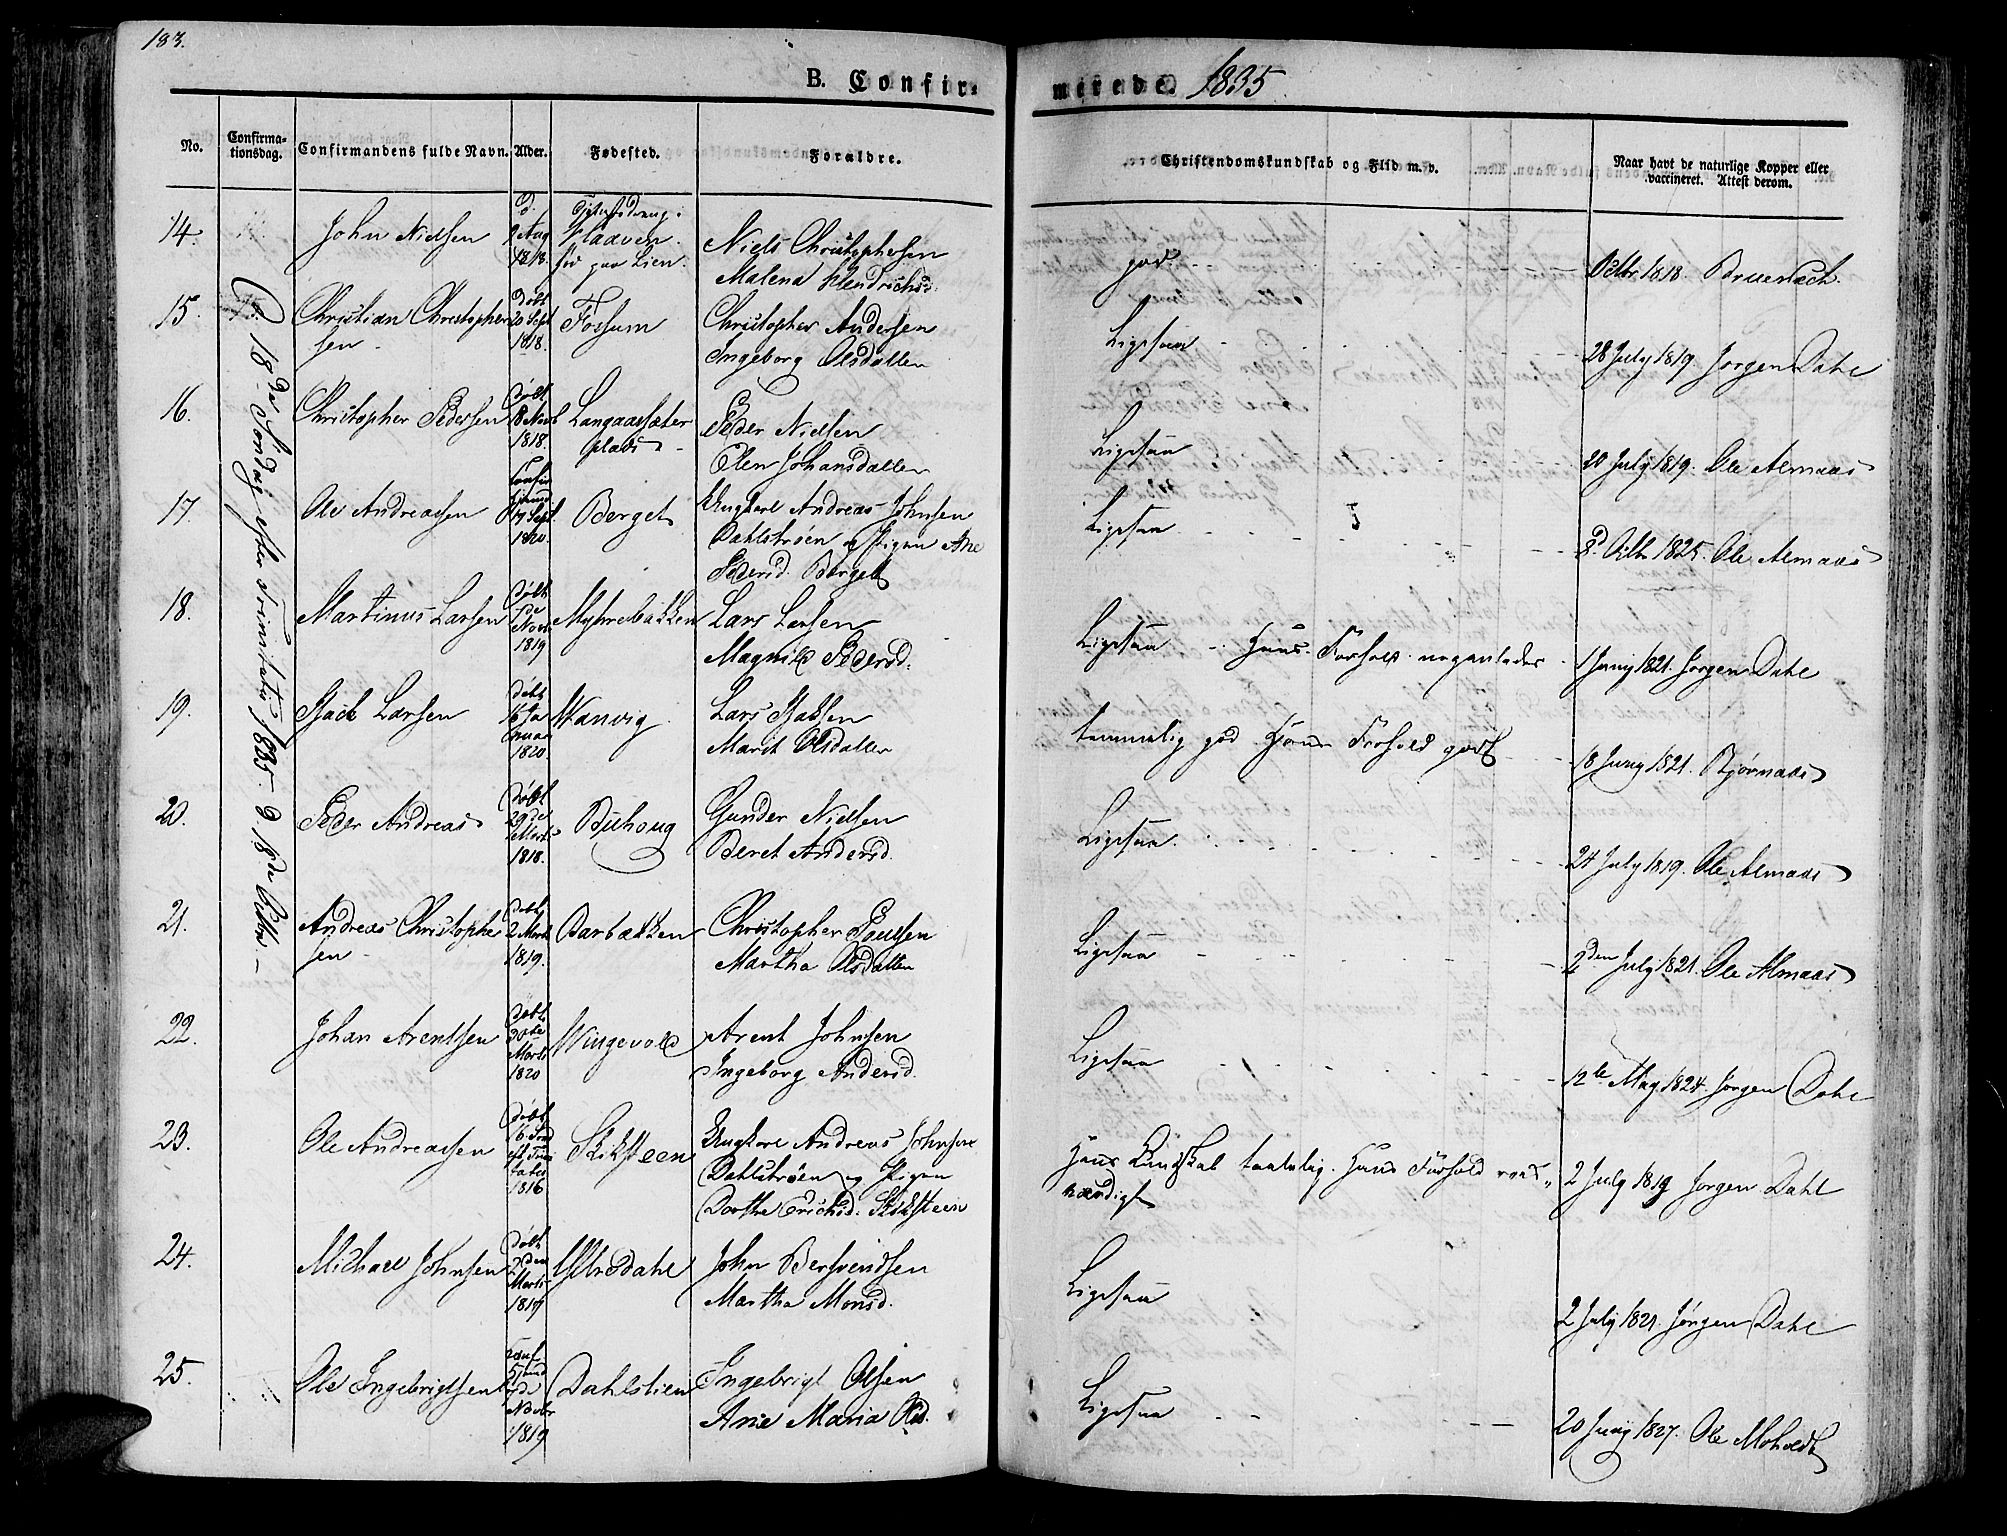 183.
B. Confir-
merede. 1835.
No.
Confirma-
tionsdag.
Confirmandens fulde Navn.
Alder.
Fødested.
Forældre.
Christendomskundskab og Flid m. v.
Naar havt de naturlige Kopper eller
vaccineret. Attest derom.
18de Söndag efter Trinitatis 1835. d 18de Octbr
14.
John Nielsen
1818.
paa Lien.
Niels Christophersen
Malena Hendrichsd.
god.
Octbr. 1818. Bruenech.
15.
Christian Christopher
sen
Døbt
20 Sept
1818.
Fossum
Christopher Andersen
Ingeborg Olsdatter
Ligesaa
28 July 1819. Jørgen Dahl
16.
Christopher Pedersen
Døbt
8 Novb
1818.
Langaassæter
plads
Peder Nielsen
Elen Johansdatter
Ligesaa
20 July 1819. Ole Almaas
17.
Ole Andreassen
17 Sept.
1820.
Berget
Ungkarl Andreas Johnsen
Dahlströen og Pigen Ane
Pedersd. Berget
Ligesaa
8d Octbr 1825. Ole Almaas
18.
Martinus Larsen
Døbt
Novbr
1819
Myhrebakken
Lars Larsen
Magnild Pedersd.
Ligesaa - Hans Forhold
1 Juny 1821. Jørgen Dahl
19.
Larsen
Døbt
16 Ja
nuar
1820.
Wanvig
Lars
Marit Olsdatter
temmelig god. Hans Forhold godt
18 Juny 1821. Bjørnaas
20.
Peder Andreas
Døbt
29de
Marts
1818.
Buhoug
Gunder Nielsen
Beret Andersd.
Ligesaa.
24 July 1819. Ole Almaas
21.
Andreas Christophe
sen
Døbt
2 Marts
1819.
Barbakken
Christopher Paulsen
Martha Olsdatter
Ligesaa
2den July 1821. Ole Almaas
22.
Johan Arentsen
Døbt
30te
Marts
1820
Wingevold
Arent Johnsen
Ingeborg Andersd.
Ligesaa
12te May 1824. Jørgen Dahl
23.
Ole Andreassen
Døbt
1816
Stiksteen
Ungkarl Andreas Johnsen
Dahlströen og Pigen
Dorthe Erichsd. Stiksteen
Hans Kundskab taalelig. Hans Forhold roes-
værdigt
2 July 1819 Jørgen Dahl
24.
Michael Johnsen
Døbt
Marts
1817
Uthsdahl
John Bersvendsen
Martha Monsd.
Ligesaa
2 July 1821. Jørgen Dahl
25.
Ole Ingebrigtsen
Novbr
1819
Dahlstien
Ingebrigt Olsen
Ane Maria Olsd.
Ligesaa
20 Juny 1827. Ole Moholdt